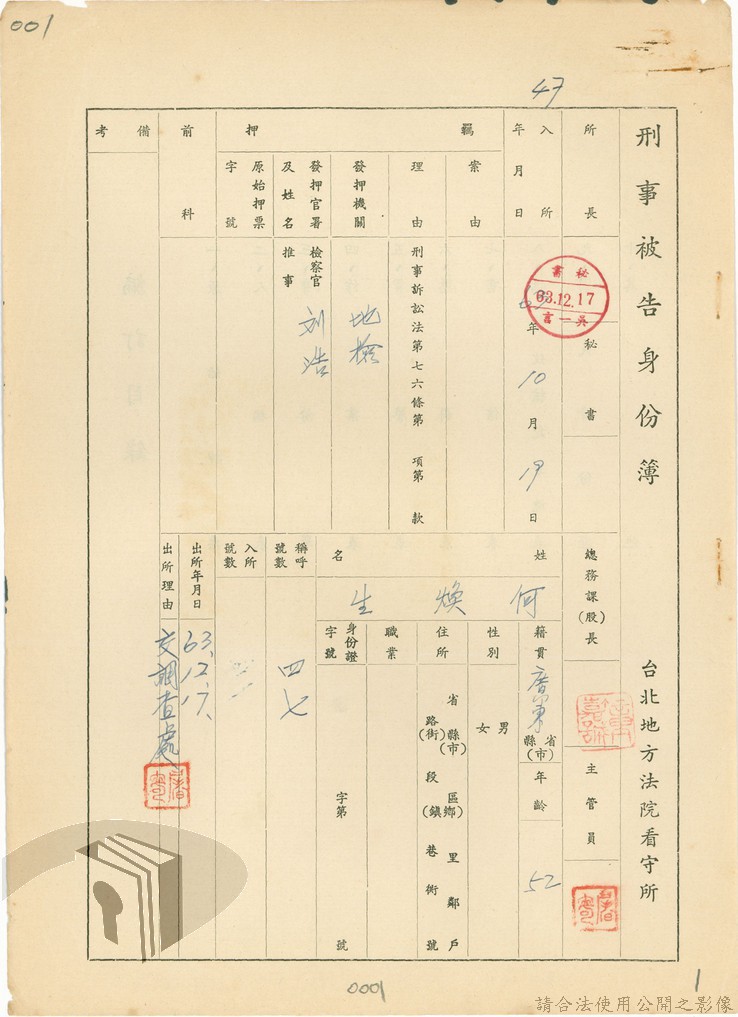 001
47
刑事被告身份簿
台北地方法院看守所
所長
秘書
總務課(股)長
主管員
入所年月日
秘書
63.12.17
吳一言
年10月19日
羈押
案由
理由
刑事訴訟法第七六條第 項第 款
發押機關
地檢
發押官署及姓名
檢察官
推事
刘浩
原始押票字號
前科
備考
姓名
何煥生
籍貫
廣東
省縣(市)
年齡
52
性別
男
女
住所
省縣(市)
區鄉(鎮)
里鄰戶
路(街)段巷衖號
職業
身份證字號
字第 號
稱呼號數
四七
入所號數
出所年月日
63.12.17.
出所理由
交調查處
0001
1
請合法使用公開之影像